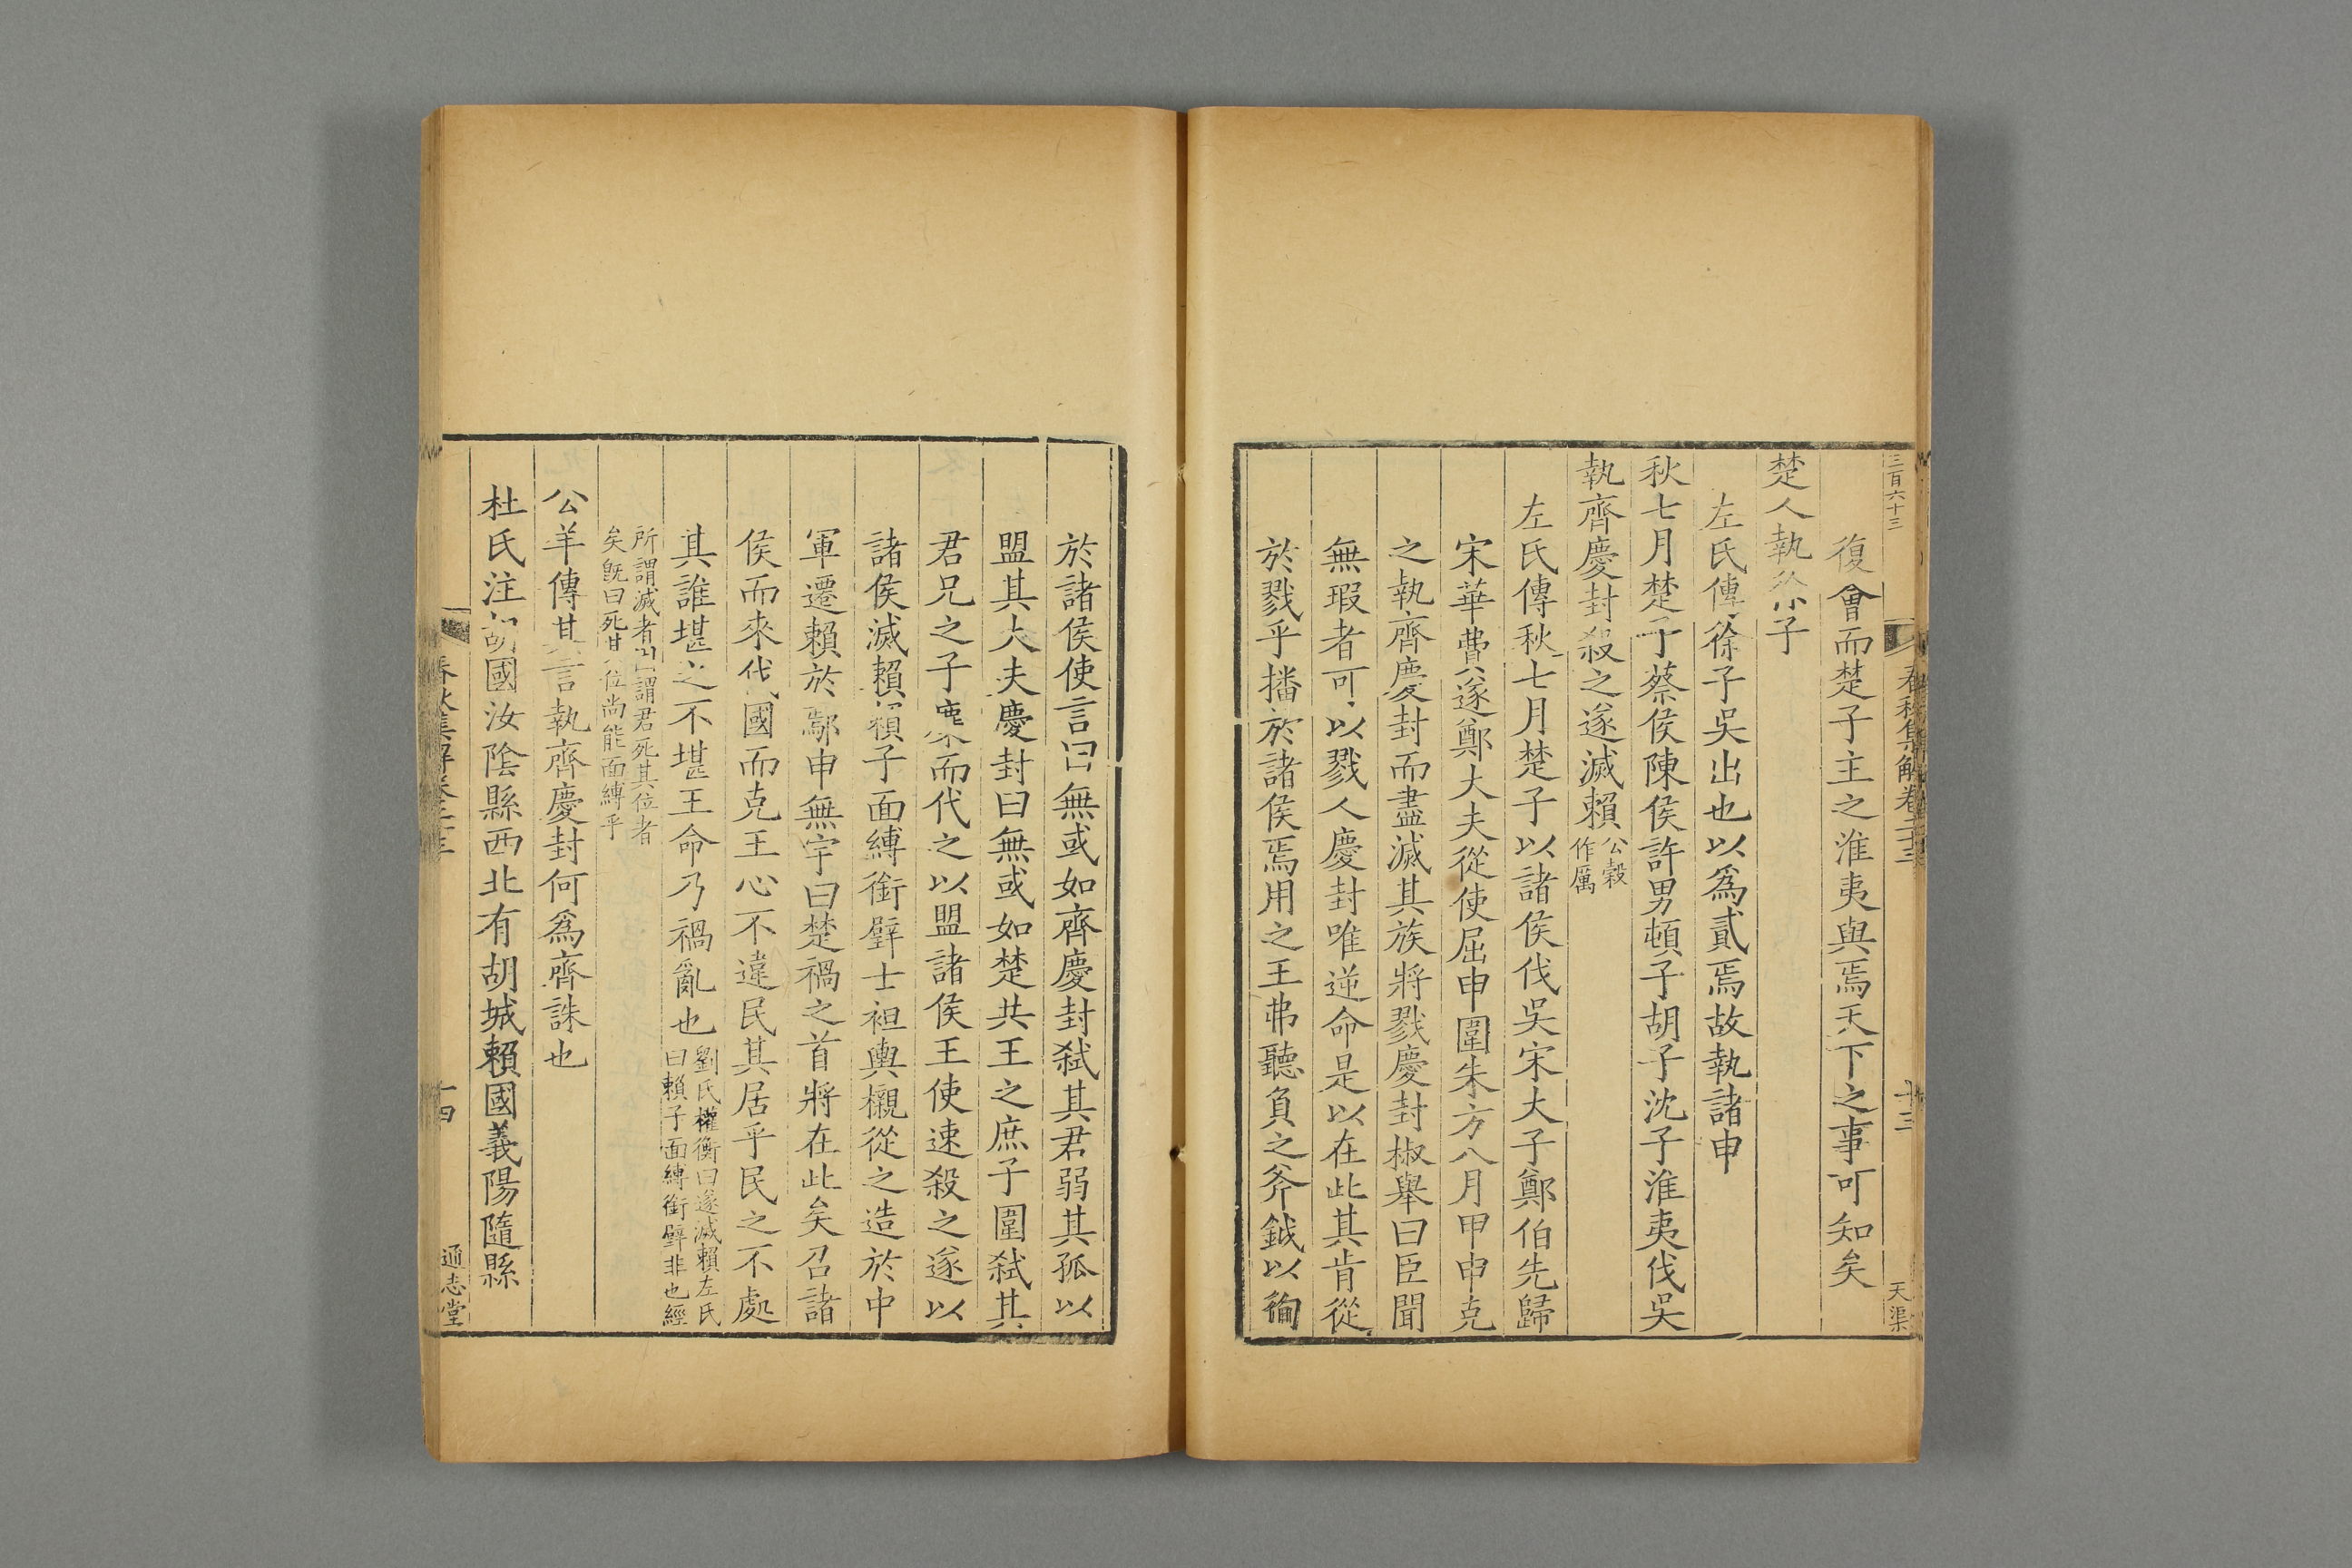 三百六十三
春秋集解卷二十三
十三
天渠
復會而楚子主之淮夷與焉天下之事可知矣
楚人執徐子
左氏傳徐子吳出也以爲貳焉故執諸申
秋七月楚子蔡侯陳侯許男頓子胡子沈子淮夷伐吳
執齊慶封殺之遂滅賴
公穀
作厲
左氏傳秋七月楚子以諸侯伐吳宋大子鄭伯先歸
宋華費遂鄭大夫從使屈申圍朱方八月甲申克
之執齊慶封而盡滅其族將戮慶封椒舉曰臣聞
無瑕者可以戮人慶封唯逆命是以在此其肯從
於戮乎播於諸侯焉用之王弗聽負之斧鉞以徇
於諸侯使言曰無或如齊慶封弑其君弱其孤以
盟其大夫慶封曰無或如楚共王之庶子圍弑其
君兄之子麇而代之以盟諸侯王使速殺之遂以
諸侯滅賴賴子面縛銜璧士袒輿櫬從之造於中
軍遷賴於鄢申無宇曰楚禍之首將在此矣召諸
侯而來伐國而克王心不違民其居乎民之不處
其誰堪之不堪王命乃禍亂也
劉氏權衡曰遂滅賴左氏
曰賴子面縛銜璧非也經
所謂滅者皆謂君死其位者
矣旣曰死其位尚能面縛乎
公羊傳其言執齊慶封何爲齊誅也
杜氏注胡國汝陰縣西北有胡城賴國義陽隨縣
春秋集解卷二十三
十四
通志堂